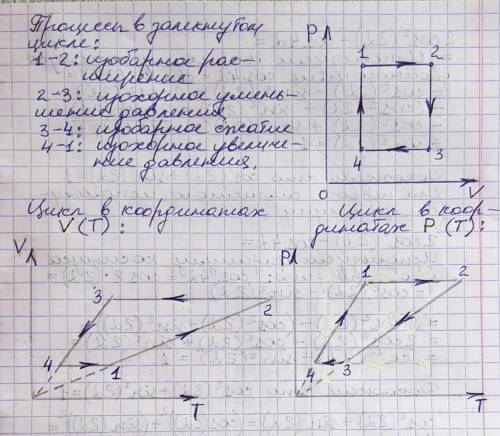 Процессы в замкнутом
цикле:
1-2: изобарное рас-
ширение
2-3: изохорное умень-
шение давления
3-4: изобарное сжатие
4-1: изохорное увеличе-
ние давления.
P
1
2
4
3
0
V
Цикл в координатах
V(T):
V
3
2
4
1
T
Цикл в коор-
динатах P(T):
P
1
2
4
3
T